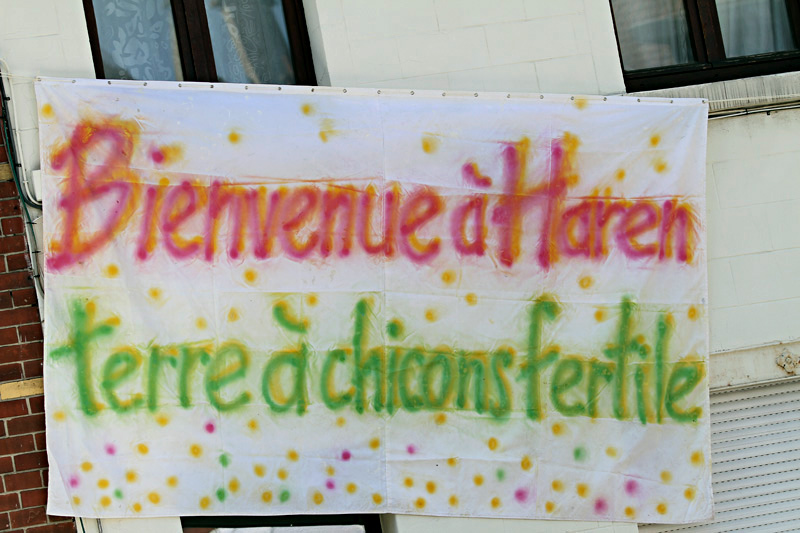 Bienvenue à Haren
terre à chicons fertile